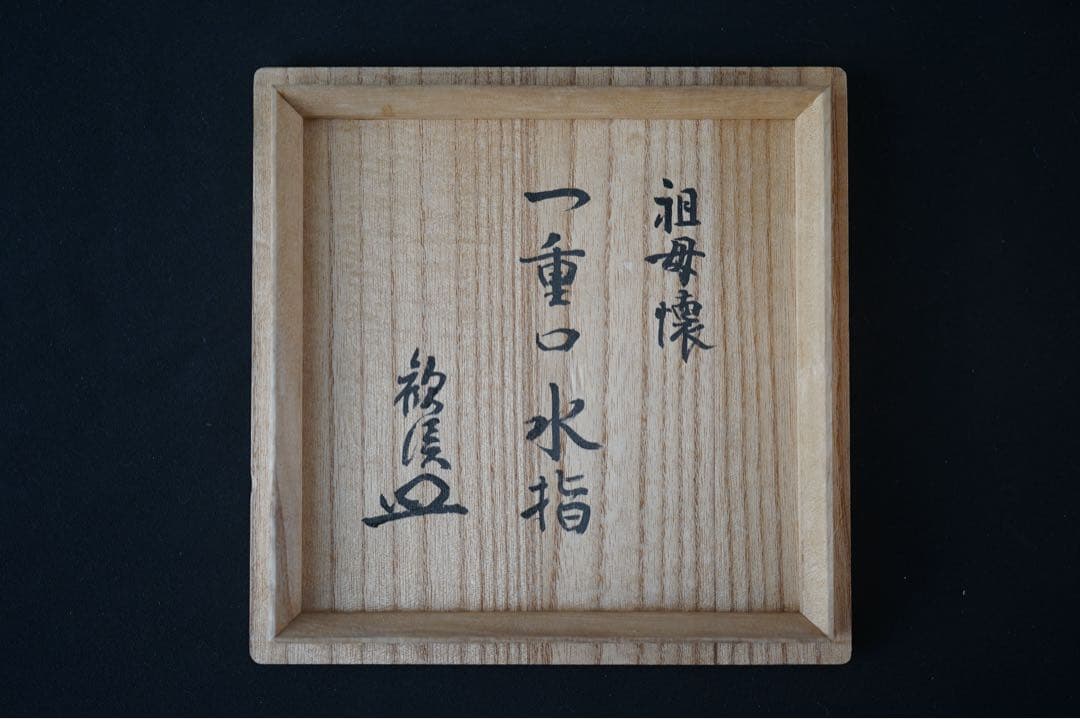 祖母懐
一重口水指